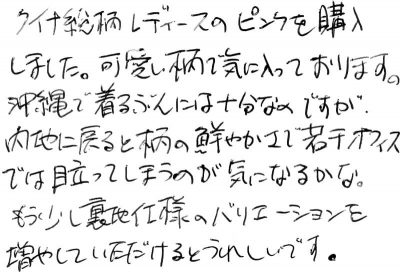 クイナ総柄レディースのピンクを購入
しました。可愛い柄で気に入っております。
沖縄で着るぶんには十分なのですが、
内地に戻ると柄の鮮やかさで若干オフィス
では目立ってしまうのが気になるかな。
もう少し裏地仕様のバリエーションを
増やしていただけるとうれしいです。